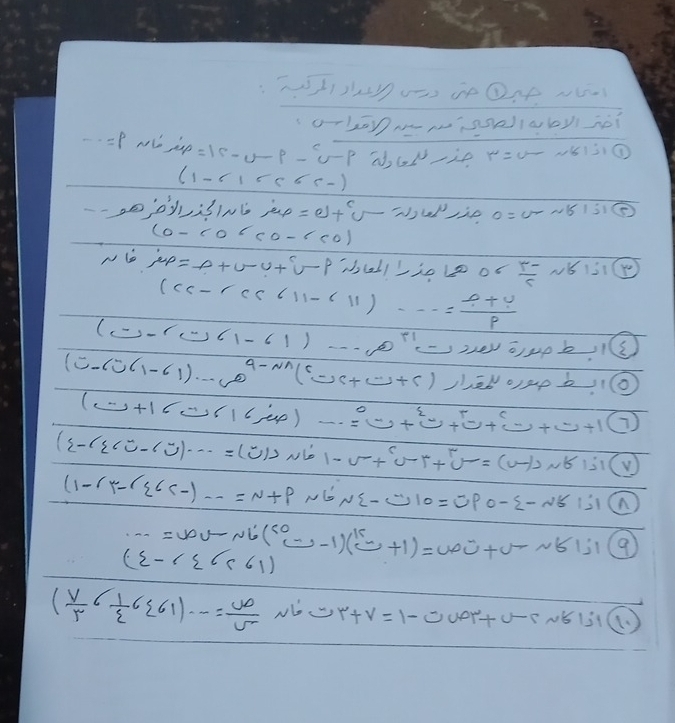 امتحان جبر ① حتى درس الاعداد المركبة :
أختر الاجابه الصحيحة من بين الاقواس :
① اذا كان س = ٣ جذر للمعادلة م س² - م س - ١٢ = صفر فان م = ...
(-٢ ، ٢ ، ١ ، -١)
② اذا كان س = ٥ جذر للمعادلة س² + ك = صفر فان الجذر الأخر هو ...
(٢٥ ، -٢٥ ، ٥ ، -٥)
③ اذا كان -٣/٢ ، ٥ هما جذرا المعادلة م س² + ب س + جـ = صفر فان
(ب + جـ)/م = .... (١١ ، -١١ ، ٢٢ ، -٢٢)
④ ابسط صورة للعدد ت³¹ هى .... (١ ، -١ ، ت ، -ت)
⑤ ابسط صورة للمقدار (٢+ت+٢ت²)⁸ⁿ⁻⁹ هى ... (١ ، -١ ، ت ، -ت)
⑥ ١ + ت + ت² + ت³ + ت⁴ + ت⁵ = ... (صفر ، ١ ، ت ، ١+ت)
⑦ اذا كان د(س) = س³ + ٣س² + س - ١ فان د(ت) = ... (ت ، -ت ، ٤ ، -٤)
⑧ اذا كان -٤ - ٥م ت = ١٥ت - ٤ن فان م + ن = ... (-٢ ، ٤ ، -٣ ، -١)
⑨ اذا كان س + ت ص = (١ + ت¹²)(١ - ت²⁵) فان س ص = ...
(١ ، ٢ ، ٤ ، -٤)
⑩ اذا كان ٢س + ٣ص ت - ١ = ٧ + ٣ت فان ص/س = ... (١ ، ٤ ، ١/٤ ، ٧/٣)